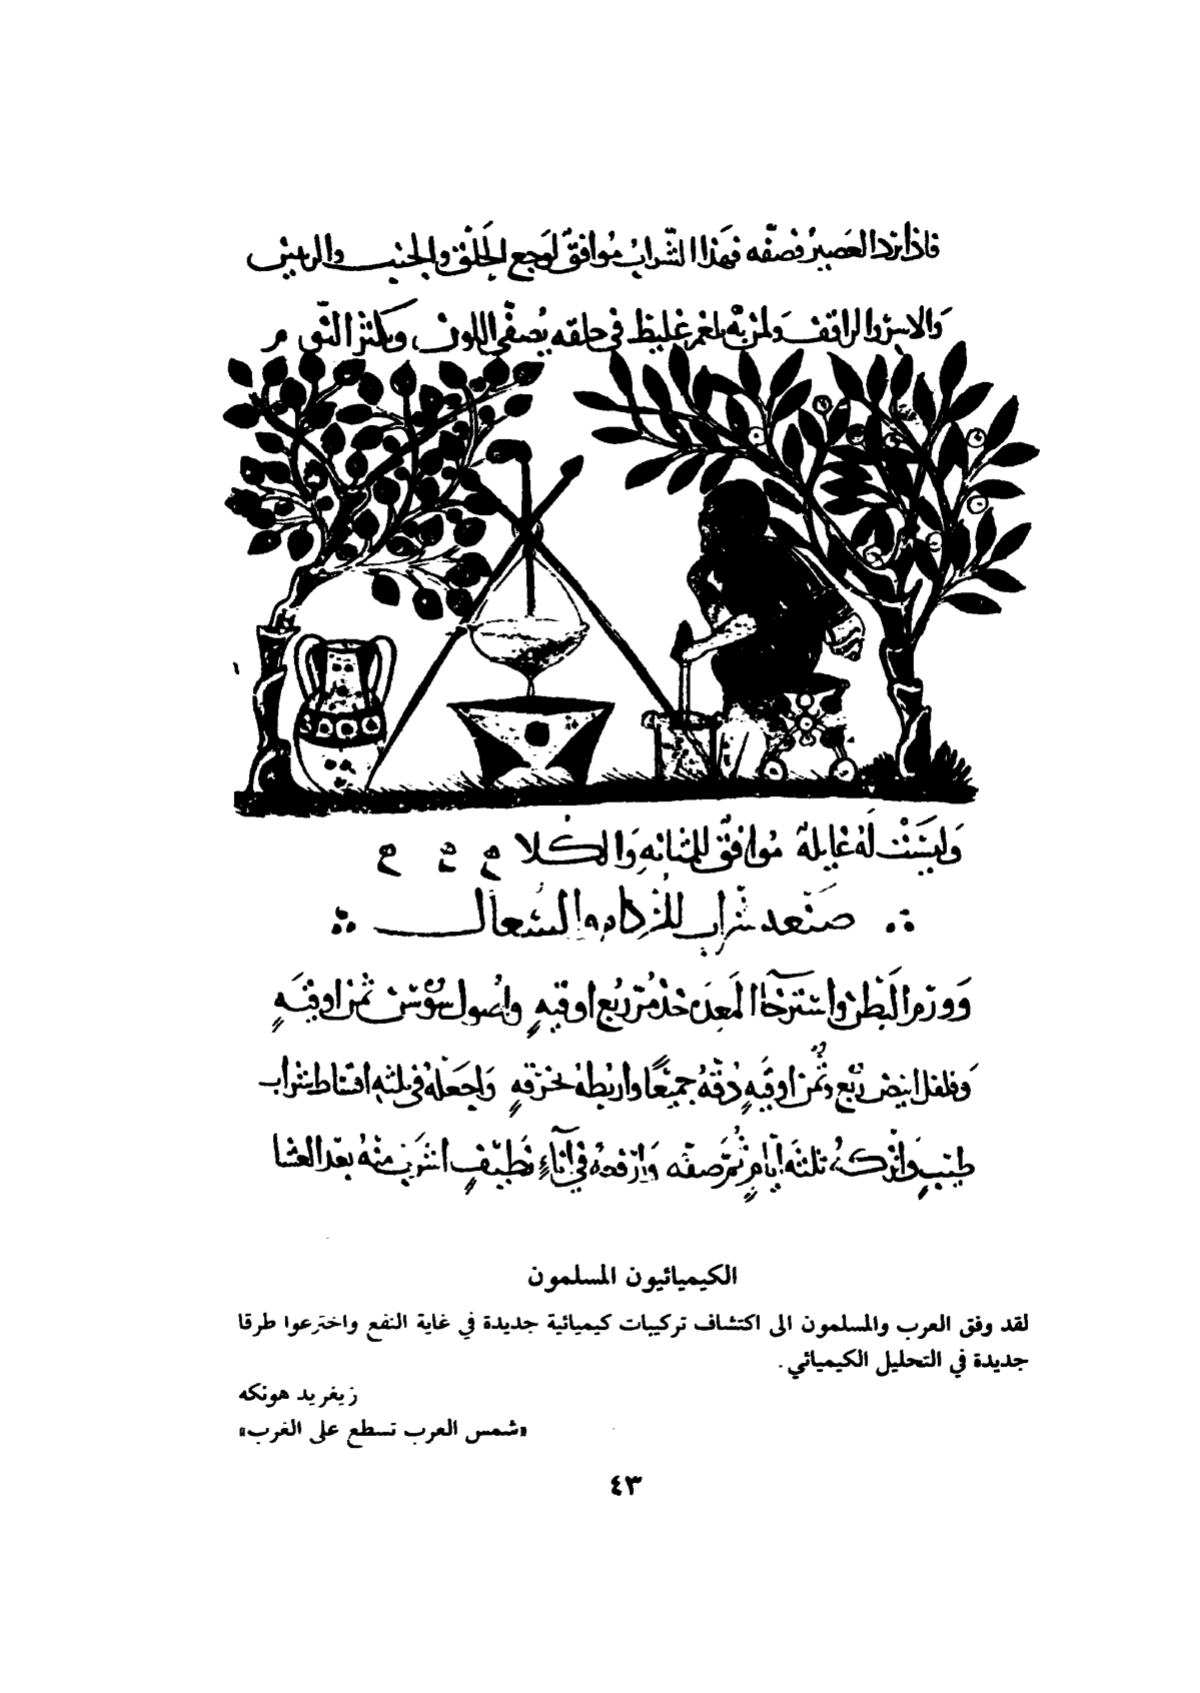 فاذا برد العصير فصفه فهذا الشراب موافق لوجع الحلق والجنب والريتين
والاسر ولمن به بلغم غليظ في حلقه يصفى اللون ويكثر النوم
وليست له غايلة موافق للمثانه والكلا
صنعه شراب للزكام والسعال
وورم البطن واسترخاا المعده خذ مر ربع اوقيه واصول سوسن ثمن اوقيه
وفلفل ابيض ربع وثمن اوقيه دقه جميعا واربطه بخرقه واجعله في ثلثه اقساط شراب
طيب واتركه ثلثه أيام ثم صفه وارفعه في آناء نظيف اشرب منه بعد العشا
الكيميائيون المسلمون
لقد وفق العرب والمسلمون الى اكتشاف تركيبات كيميائية جديدة في غاية النفع واخترعوا طرقا
جديدة في التحليل الكيميائي.
زيغريد هونكه
«شمس العرب تسطع على الغرب»
٤٣